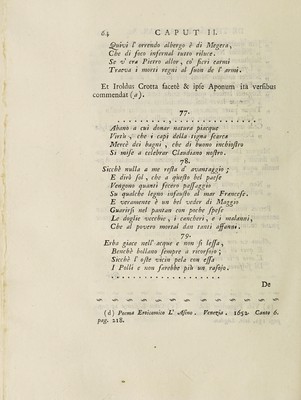 64 CAPUT II.
Quivi l' orrendo albergo è di Megera,
Che di foco infernal tutto riluce.
Se v' era Pietro allor, co' fieri carmi
Traeva i morti regni al suon de l' armi.
Et Iroldus Crotta facetè & ipse Aponum ita versibus
commendat (a).
77.
Abano a cui donar natura piacque
Virtù, che i capi della tigna secca
Mercè dei bagni, che di buono inchiostro
Si mise a celebrar Claudiano nostro.
78.
Sicchè nulla a me resta d' avantaggio;
E dirò sol, che a questo bel paese
Vengono quanti fecero passaggio
Su qualche legno infausto al mar Francese.
E veramente è un bel veder di Maggio
Guarirsi nel pantan con poche spese
Le doglie vecchie, i cancheri, e i malanni,
Che al povero mortal dan tanti affanni.
79.
Erba giace nell' acque e non si lessa,
Benchè bollano sempre a ricorsojo;
Sicchè l' oste vicin pela con essa
I Polli e non farebbe più un rasojo.
De
(a) Poema Eroicomico L' Asino. Venezia. 1652. Canto 6.
pag. 218.